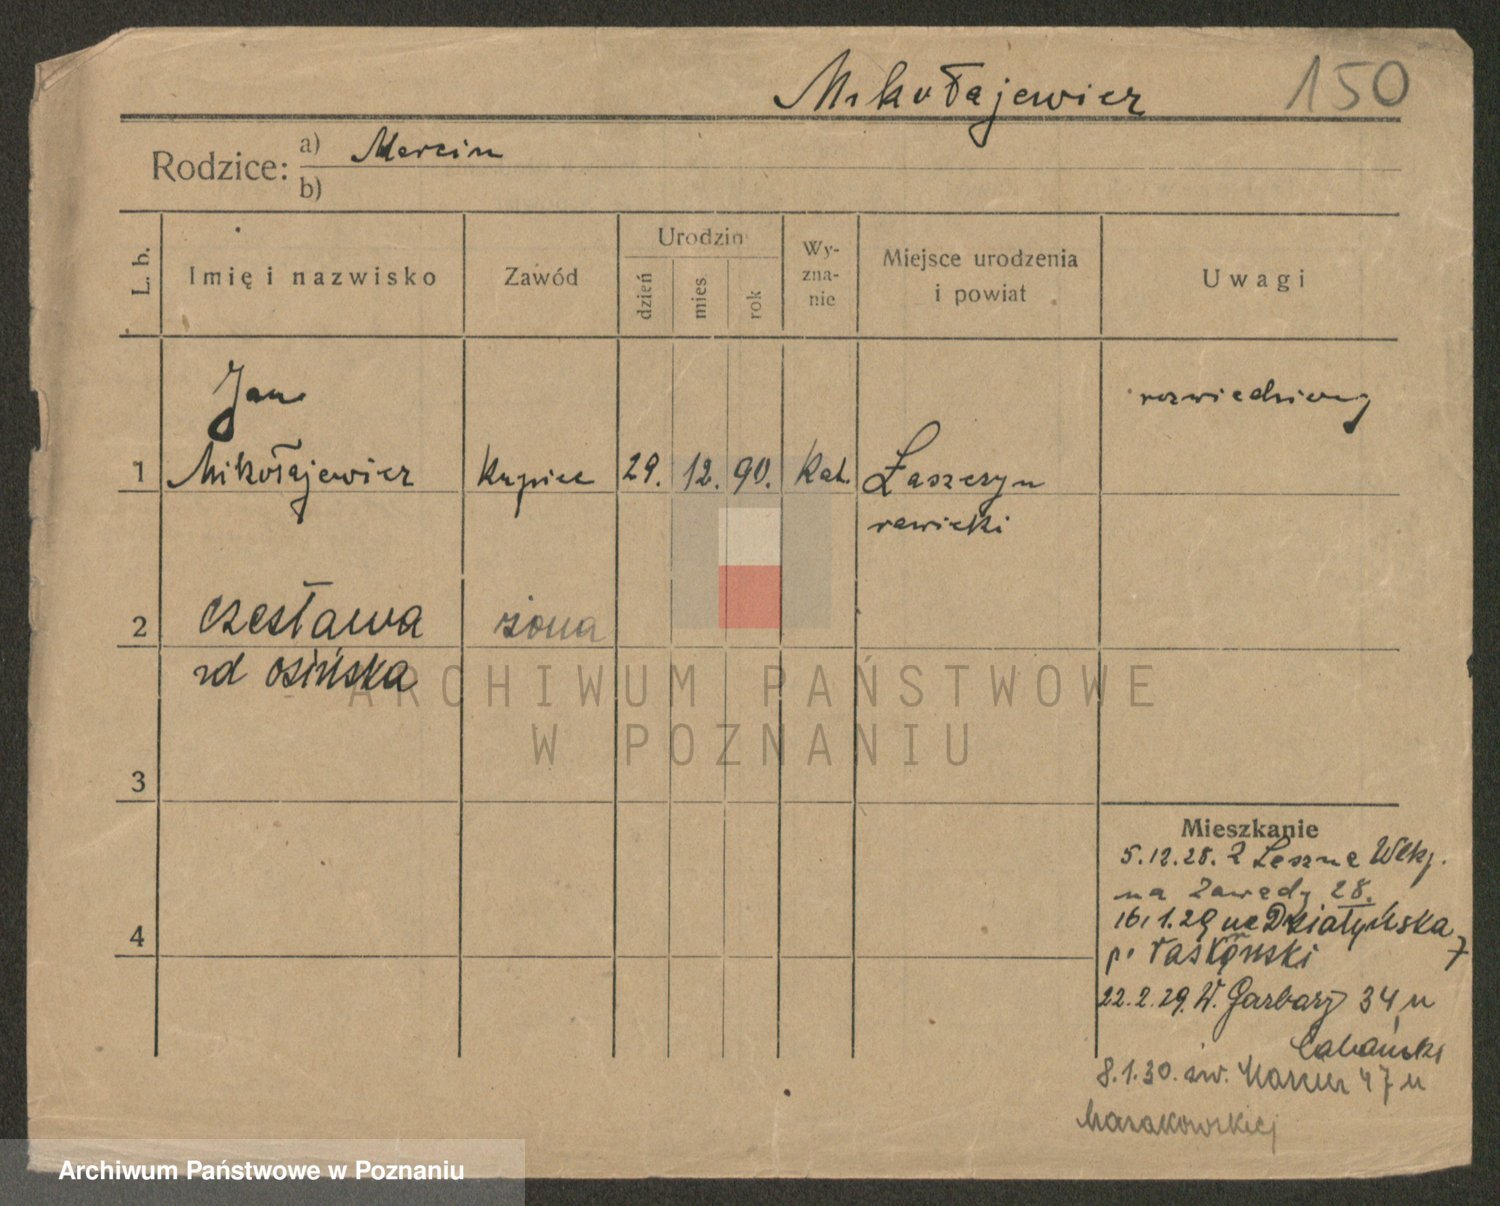 Mikołajewicz 150
Rodzice: a) Marcin
b)
L. b. Imię i nazwisko Zawód Urodzin dzień mies. rok Wyznanie Miejsce urodzenia i powiat Uwagi
Jan rozwiedziony
1 Mikołajewicz kupiec 29. 12. 90. kat. Łaszczyn
rawicki
2 Czesława żona
zd Osińska
ARCHIWUM PAŃSTWOWE
W POZNANIU
3
Mieszkanie
5.12.28. z Leszna Wlkp.
na Zawady 28.
4
16.1.29 na Działyńska 7
p.
22.2.29. W. Garbary 34 u
8.1.30. św. Marcin 47 u
Archiwum Państwowe w Poznaniu